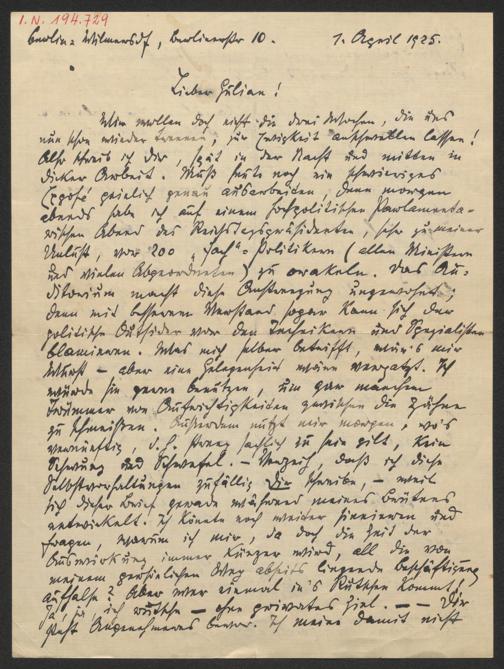 I.N. 194.729
Berlin-Wilmersdf, Berlinerstr 10. 1. April 1925.
Lieber Julian!
Wir wollen doch nicht die drei Wochen, die uns
nun schon wieder trennen, zur Ewigkeit anschwellen lassen!
Also schreib ich Dir, spät in der Nacht und mitten in
dicker Arbeit. Muß heute noch ein schwieriges
Exposé peinlich genau ausarbeiten, denn morgen
abends hab ich auf einem hochpolitischen Parlamenta-
rischen Abend des Reichstagspräsidenten, sehr zu meiner
Unlust, vor 200 „Fach"-Politikern (allen Ministern
und vielen Abgeordneten) zu orakeln. Das Au-
ditorium macht diese Anstrengung ungewohnt;
denn mit besserem Verstand sogar kann sich der
politische Outsider vor den Technikern und Spezialisten
blamieren. Was mich selber betrifft, wär's mir
Wurst – aber eine Gelegenheit wäre verpatzt. Ich
würde sie gerne benützen, um gar manchem
Trümmer von Aufrichtigkeiten zwischen die Zähne
zu schmeißen. Außerdem nützt mir morgen, wo's
vernünftig, d.h. streng sachlich zu sein gilt, kein
Schwung und Schwefel. – Verzeih, daß ich diese
Selbstvorhaltungen zufällig Dir schreibe, – weil
sich dieser Brief gerade während meines Brütens
entwickelt. Ich könnte noch weiter sinnieren und
fragen, warum ich mir, da doch die Zeit der
Auswirkung immer kürzer wird, all die von
meinem persönlichen Weg abseits liegende Beschäftigung
aufhalse? Aber wer einmal in's Rutschen kommt!
Ja, ja, ich rutsche – ohne privates Ziel. – – Dir
steht Angenehmeres bevor. Ich meine damit nicht